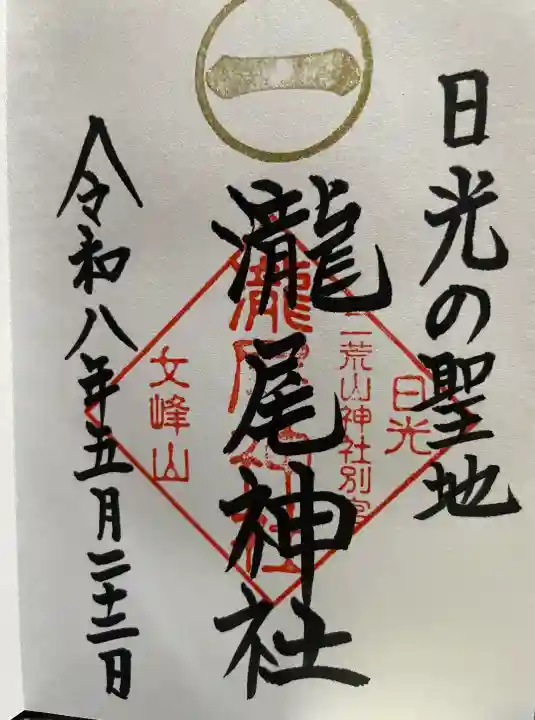 日光の聖地
瀧尾神社
令和八年五月二十二日
日光
二荒山神社別宮
瀧尾神社
女峰山